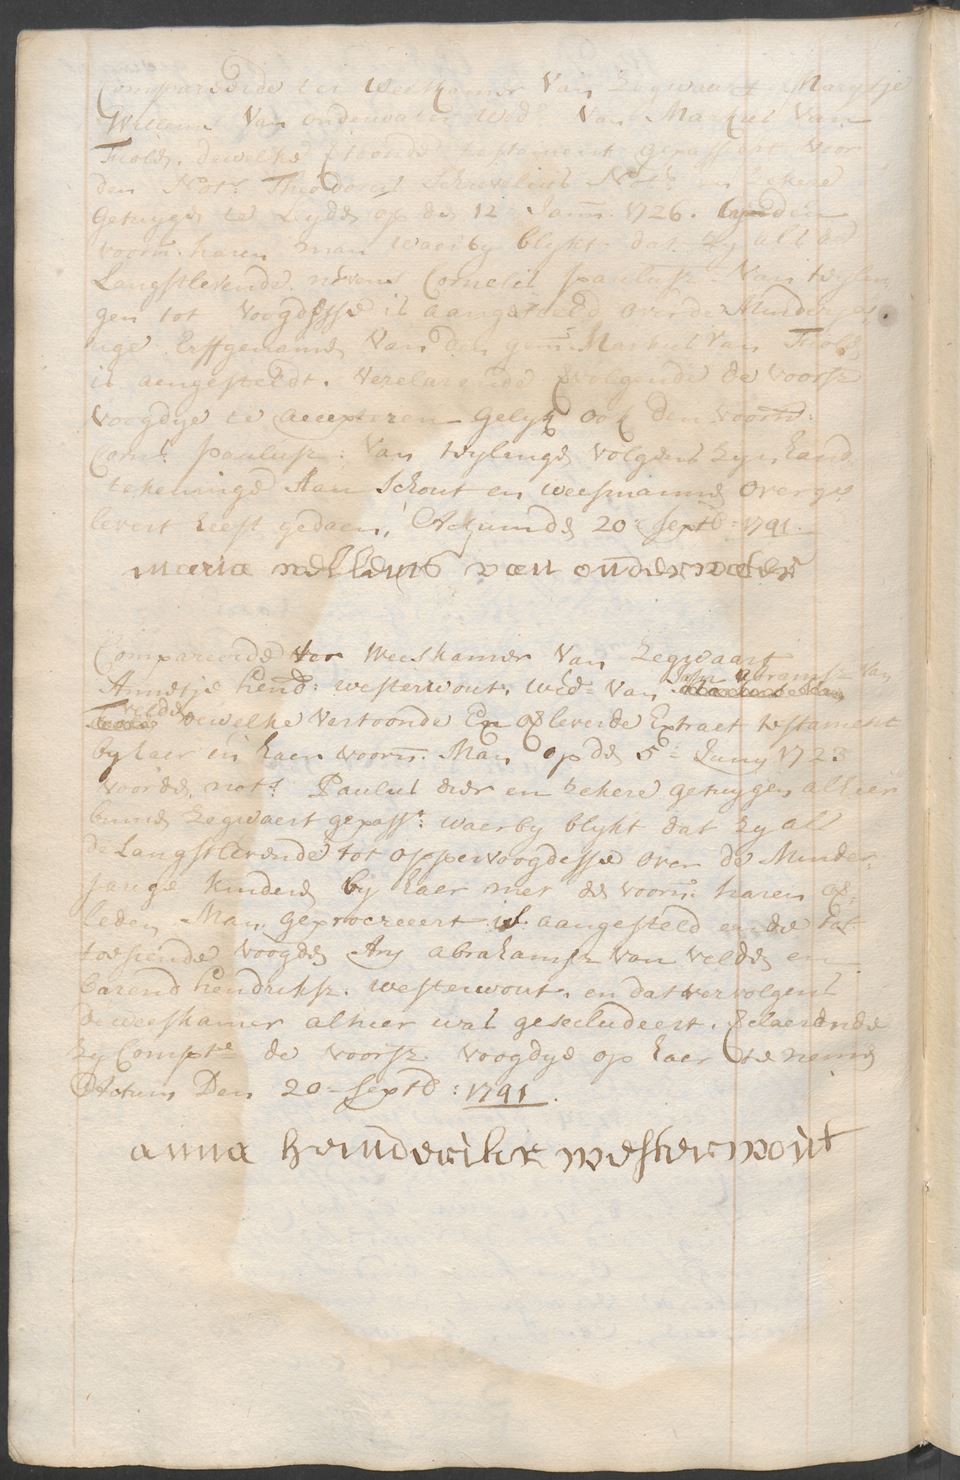 Compareerde ter Weeskamer Van Zegwaart Marytje
Willems Van onderwater Wedᵉ Van Markus Van
Tiolen, dewelke thoonde testament gepasseert voor
den Notˢ Theodorus Schrevelius Notˢ en zekere
Getuyge te Leyde op de 12 Janu: 1726. by den
voorn: haren man waerby blykt dat Zy als de
Langstlevende nevens Cornelis Paulusz Van teylin
gen tot Voogdesse is aangesteld over de Minderja
rige Erffgename Van den gem: Markus Van Tiole
is aengesteldt. Verclarende volgende de voorsz
voogdye te accepteren Gelyk ook den voorn:
Corn: Paulusz: Van teylinge volgens zyn hand
tekeninge Aan Schout en weesmanne overge
levert heeft gedaen, Actum de 20 Septb: 1791.
maria wellems van onderwater
Compareerde ter Weeskamer Van Zegwaart
Annetje Hend: westerwout, Wed: Van
Abramsz Van
Velde dewelke Vertoonde En overleverde Extract testament
by haer en haer voorn: Man op de 5: Juny 1723
voor de notˢ Paulus en zekere getuygen alhier
binne Zegwaert gepasst: waerby blykt dat zy als
de Langstlevende tot oppervoogdesse over de Minder
jarige Kindere by haer met de voorn: haren over
leden Man geprocreeert is aangesteld en de tot
toesiende Voogden Ary abrahamsz van velde en
barend hendriksz. westerwout, en dat vervolgens
de weeskamer alhier was geseecludeert. 
zy Compte de voorsz. Voogdye op haer te neme
Actum Den 20 Septb: 1791.
anna henderikse westerwout